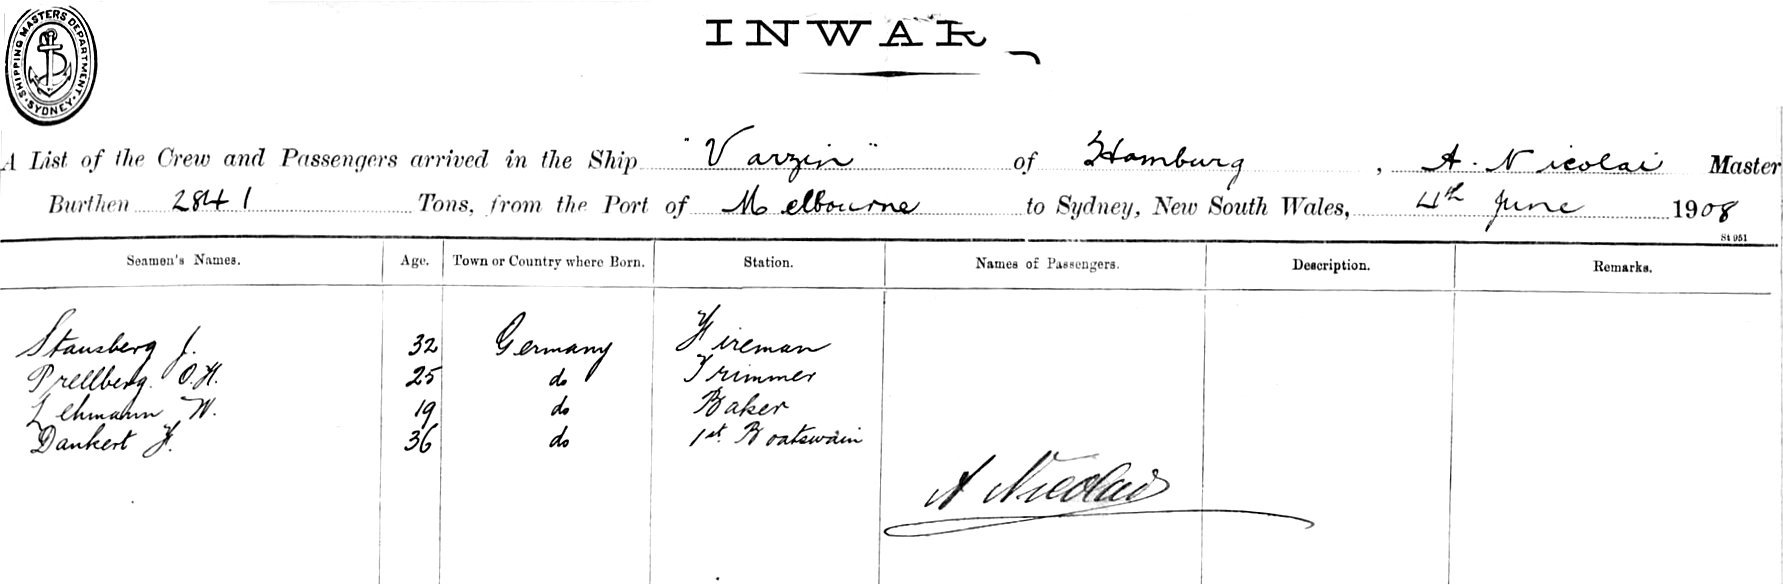 SHIPPING MASTERS DEPARTMENT · SYDNEY ·
INWAR
A List of the Crew and Passengers arrived in the Ship "Varzin" of Hamburg, A. Nicolai Master
Burthen 2841 Tons, from the Port of Melbourne to Sydney, New South Wales, 4th June 1908
St 951
Seamen's Names. Age. Town or Country where Born. Station. Names of Passengers. Description. Remarks.
Stausberg J. 32 Germany Fireman
Prellberg. O.H. 25 do Trimmer
Lehmann W. 19 do Baker
Dankert F. 36 do 1st Boatswain
A Nicolai